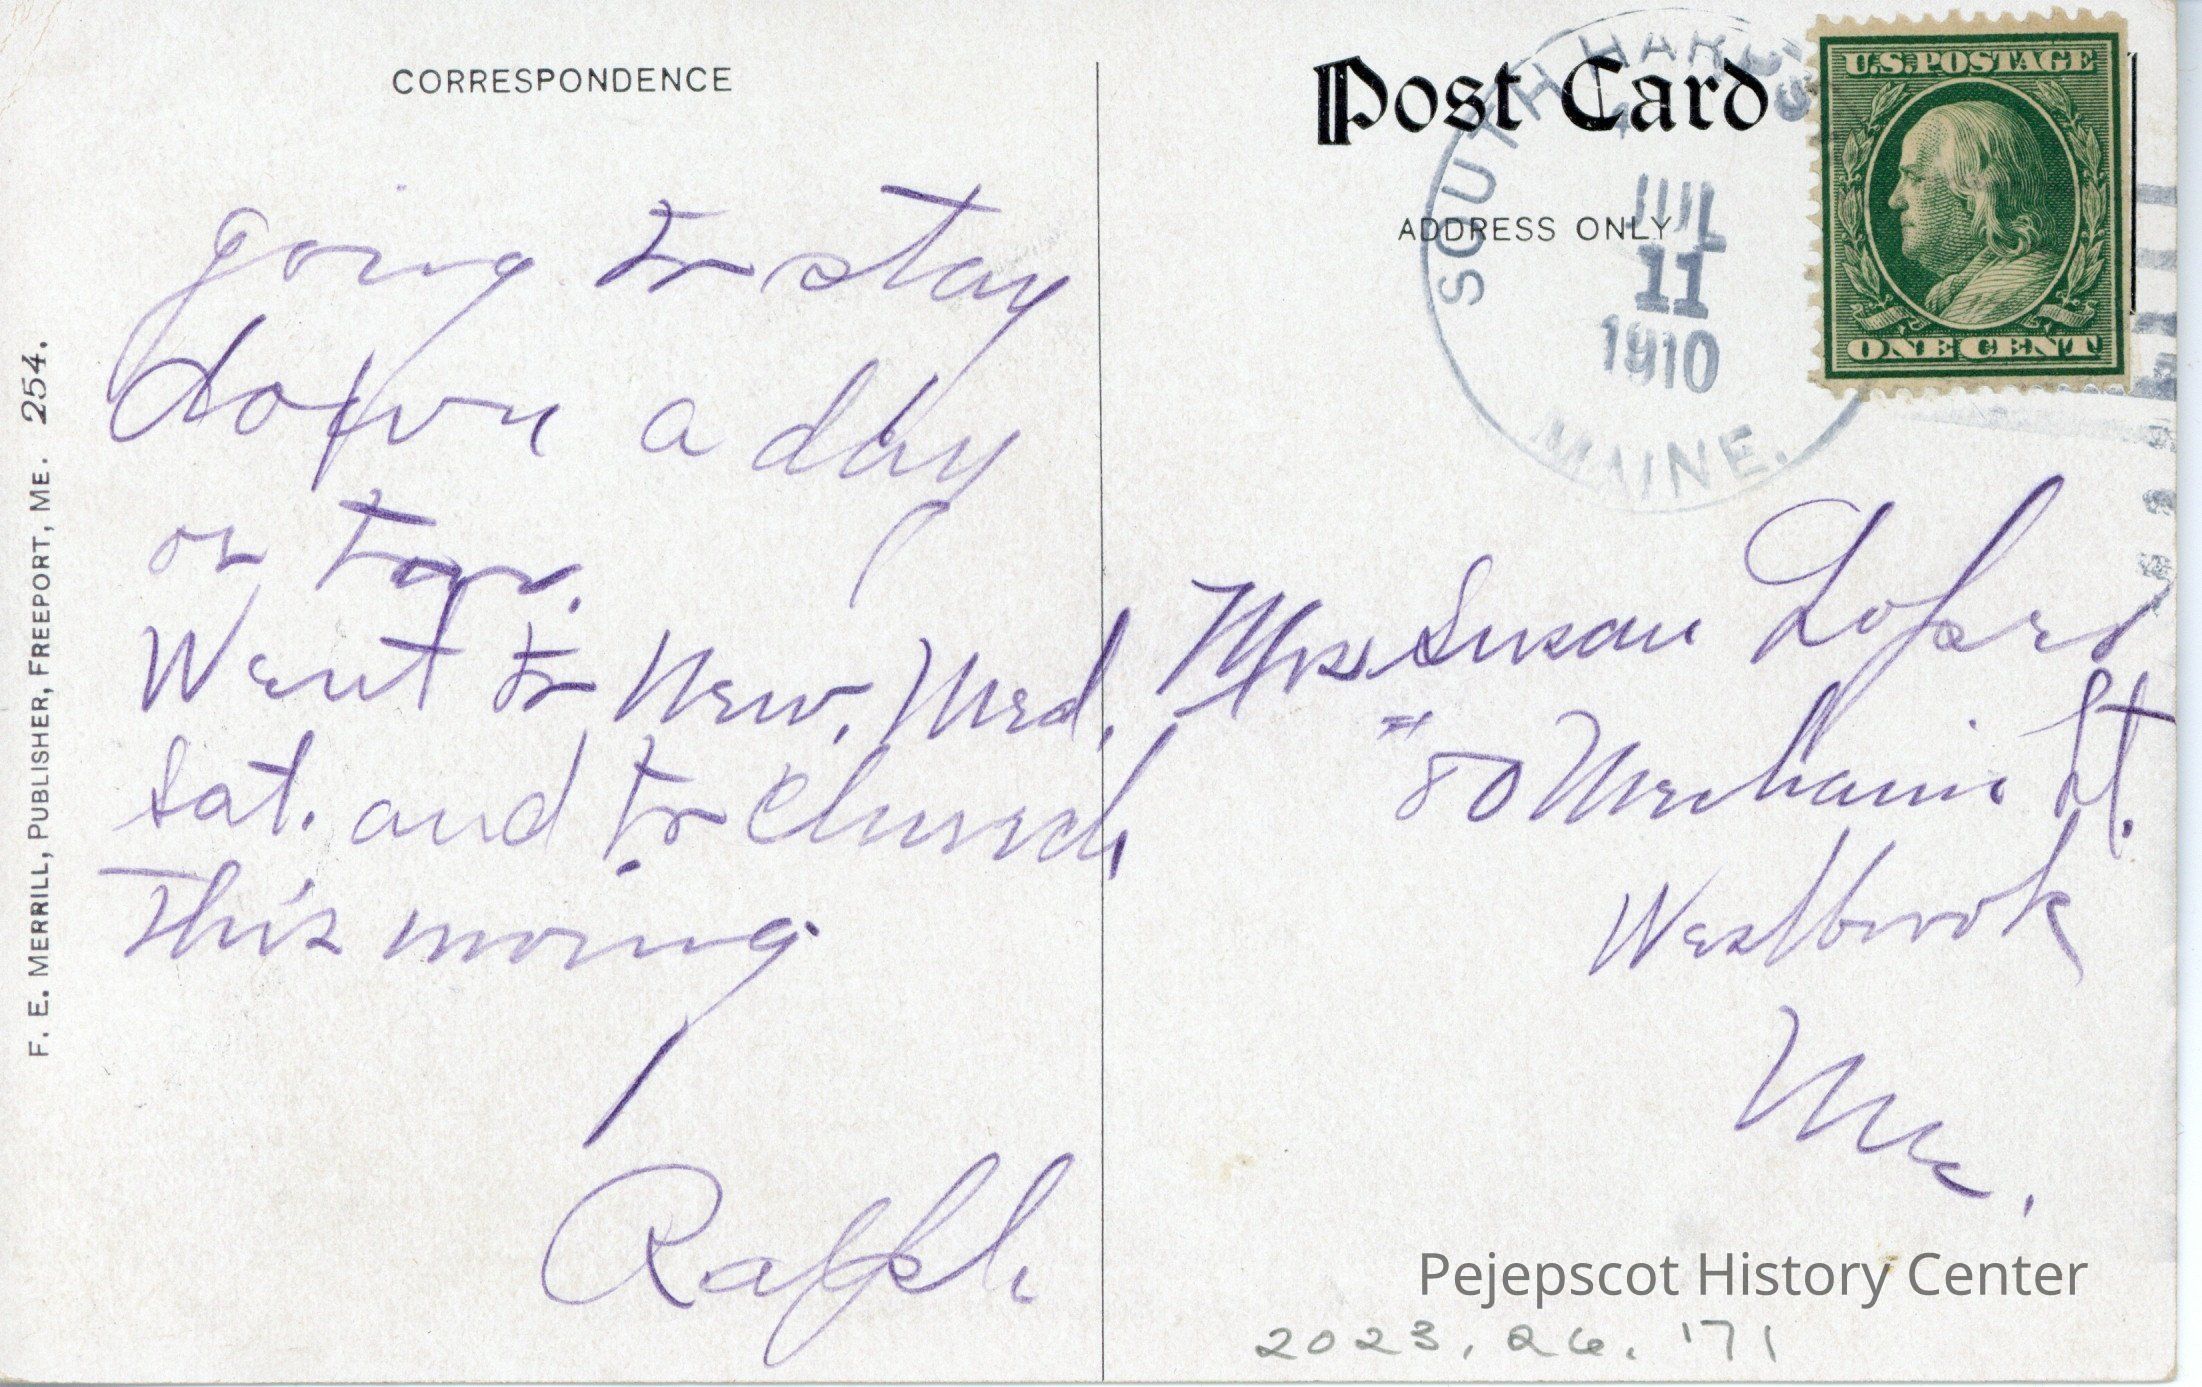 CORRESPONDENCE
going to stay
down a day
or two.
Went to New. Med.
Sat. and to Church
this moring
Ralph
F. E. MERRILL, PUBLISHER, FREEPORT, ME. 254.
Post Card
ADDRESS ONLY
SOUTH HARPS
JUL
11
1910
MAINE.
U.S. POSTAGE
ONE CENT
Mrs Susan
#80 Mechanic St.
Westbrook
Me.
Pejepscot History Center
2023.26.171